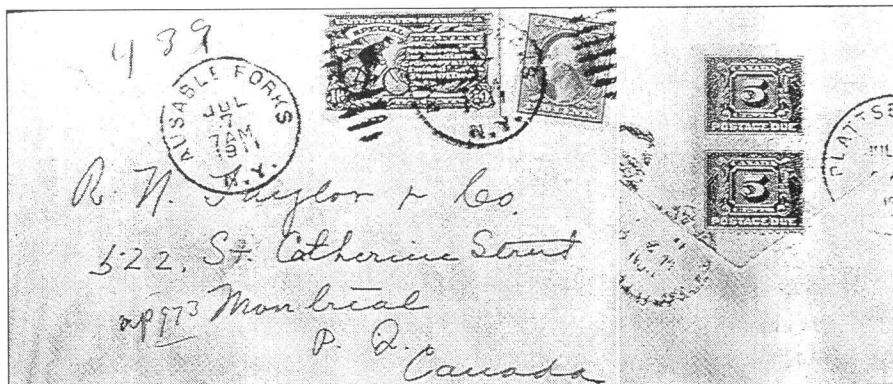 439
SPECIAL
AUSABLE FORKS
JUL
7
7AM
1911
N.Y.
N.Y.
R. N. Taylor & Co.
522, St. Catherine Street
Montreal
P. Q.
Canada
5
POSTAGE DUE
5
POSTAGE DUE
PLATTSB
JUL